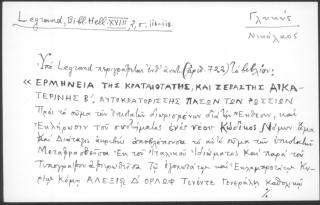 Legrand, Bibl. Hell. XVIII 2, σ. 116-118.
Γλυκύς
Νικόλαος
Ὑπὸ Legrand περιγράφεται (ἀριθ. 722) τὸ βιβλίον:
« ΕΡΜΗΝΕΙΑ ΤΗΣ ΚΡΑΤΑΙΟΤΑΤΗΣ, ΚΑΙ ΣΕΒΑΣΤΗΣ ΑΙΚΑ-
ΤΕΡΙΝΗΣ Β΄, ΑΥΤΟΚΡΑΤΟΡΙΣΣΗΣ ΠΑΣΩΝ ΤΩΝ ΡΩΣΣΙΩΝ
Πρὸς τὸ σῶμα τῶν ἐπιστατῶν διωρισμένων διὰ τὴν Ἔκθεσιν, καὶ
Ἐκπλήρωσιν τοῦ συστήματος ἑνὸς νέου Κώδικος Νόμων ἅμα
καὶ Διάταξις ἀκριβὴς ἀποβλέπουσα τὸ αὐτὸ σῶμα τῶν ἐπιστατῶν
Μεταφρασθεῖσα Ἐκ τοῦ Ἰταλικοῦ Ἰδιώματος Καὶ παρὰ τοῦ
Τυπογράφου ἀφιερωθεῖσα Τῷ ὑψηλοτάτῳ καὶ Ἐκλαμπροτάτῳ Κυ-
ρίῳ Κόμῃ ΑΛΕΞΙΩ Δ' ΟΡΛΩΦ Τενέντε Γενεράλῃ